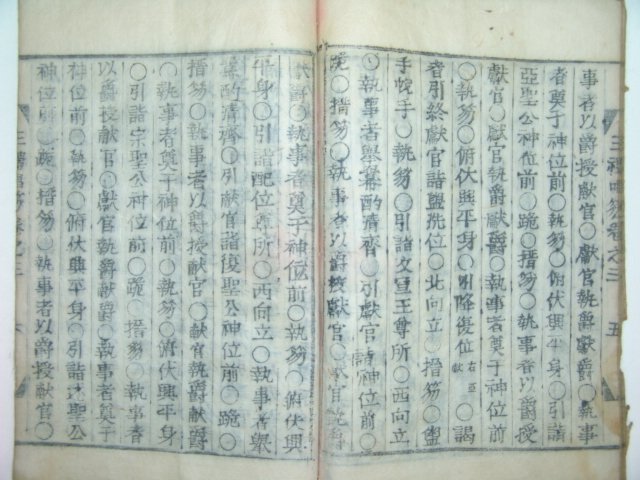 三禮唱笏卷之三 五
事者以爵授獻官○獻官執爵獻爵○執事
者奠于神位前○執笏○俯伏興平身○引詣
亞聖公神位前○跪○搢笏○執事者以爵授
獻官○獻官執爵獻爵○執事者奠于神位前
○執笏○俯伏興平身○引降復位右亞獻○謁
者引終獻官詣盥洗位○北向立○搢笏○盥
手帨手○執笏○引詣文宣王尊所○西向立
○執事者舉冪酌清齊○引獻官詣神位前○
跪○搢笏○執事者以爵授獻官○獻官執爵
獻爵○執事者奠于神位前○執笏○俯伏興
平身○引詣配位尊所○西向立○執事者舉
冪酌清齊○引獻官詣復聖公神位前○跪○
搢笏○執事者以爵授獻官○獻官執爵獻爵
○執事者奠于神位前○執笏○俯伏興平身
○引詣宗聖公神位前○跪○搢笏○執事者
以爵授獻官○獻官執爵獻爵○執事者奠于
神位前○執笏○俯伏興平身○引詣述聖公
神位前○跪○搢笏○執事者以爵授獻官○